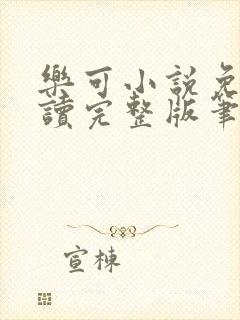 樂可小說免
讀完整版筆
宣棟